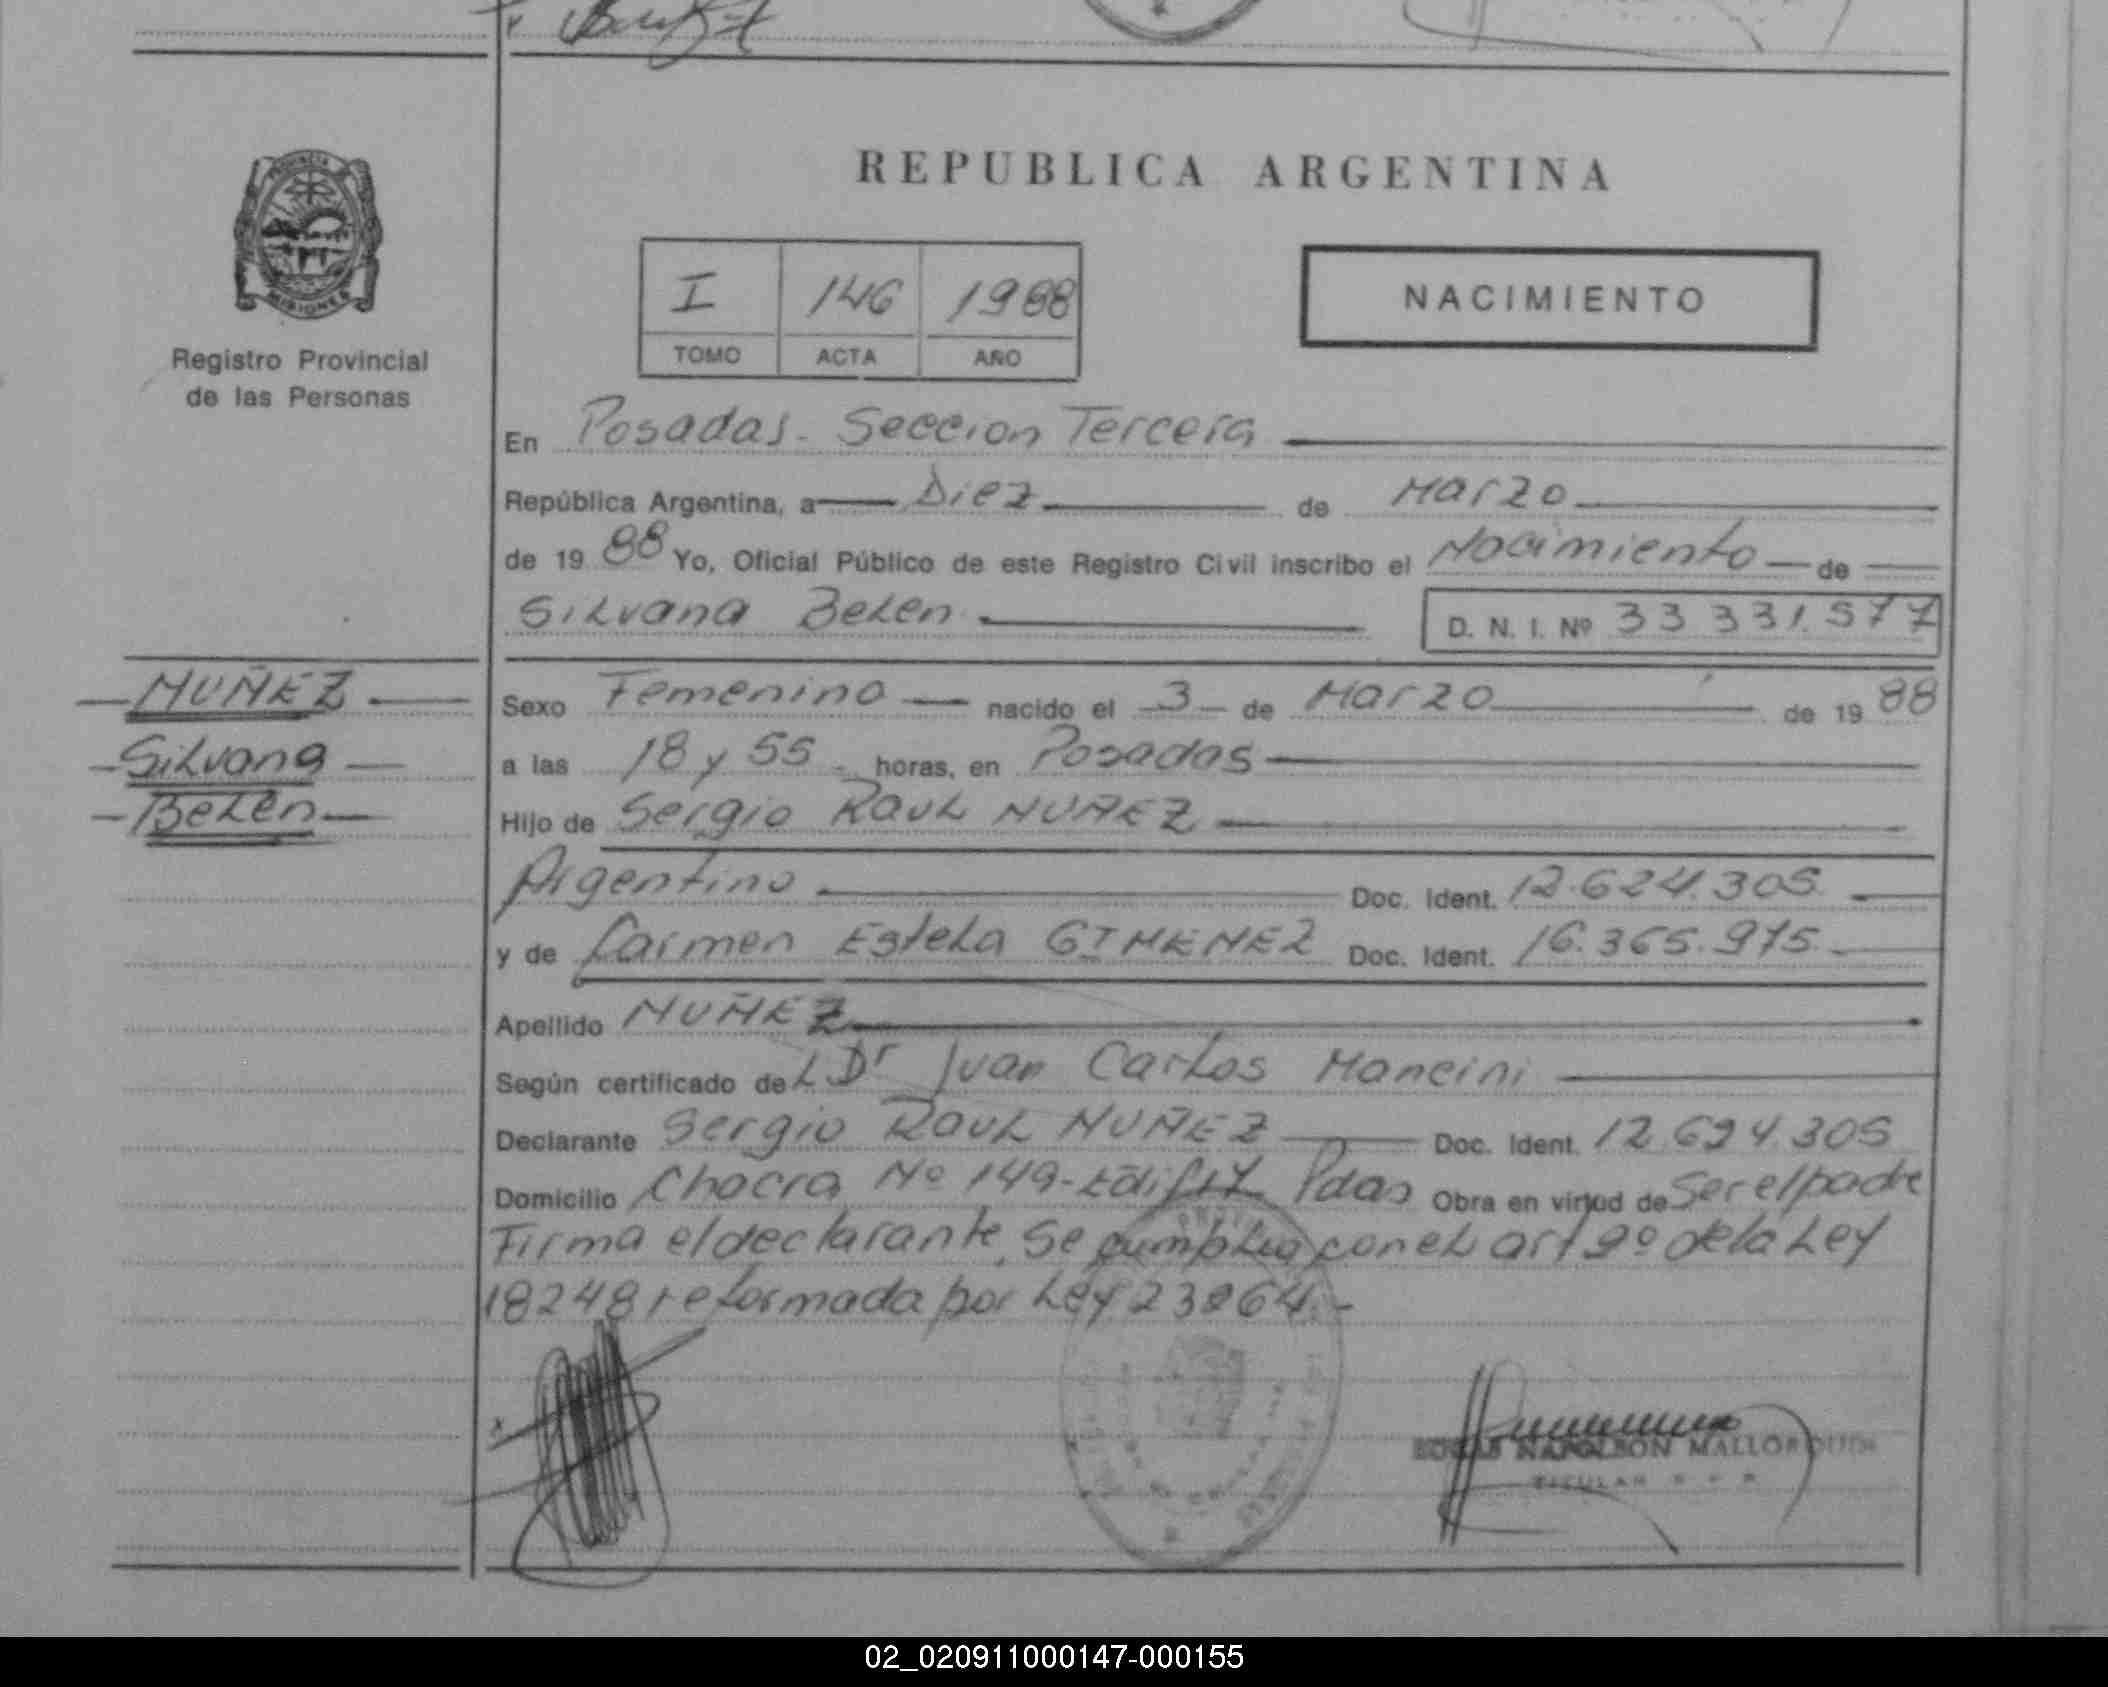 REPUBLICA ARGENTINA
PROVINCIA
MISIONES
Registro Provincial
de las Personas
I 146 1988
TOMO ACTA AÑO
NACIMIENTO
En Posadas - Seccion Tercera
República Argentina, a Diez de Marzo
de 19 88 Yo, Oficial Público de este Registro Civil inscribo el Nacimiento de
Silvana Belen D. N. I. Nº 33 331.577
NUÑEZ
Silvana
Belen
Sexo Femenino nacido el 3 de Marzo de 19 88
a las 18 y 55 - horas, en Posadas
Hijo de Sergio Raul NUÑEZ
Argentino Doc. Ident. 12.624.305
y de Carmen Estela GIMENEZ Doc. Ident. 16.365.975
Apellido NUÑEZ
Según certificado del Dr Juan Carlos Mancini
Declarante Sergio Raul NUÑEZ Doc. Ident. 12.624.305
Domicilio Chacra Nº 149- Pdas Obra en virtud de Ser el padre
Firma el declarante. Se cumplio con el art 2º de la Ley
18248 reformada por Ley 23264.-
NAPOLEON MALLORQUIN
TITULAR
02_020911000147-000155